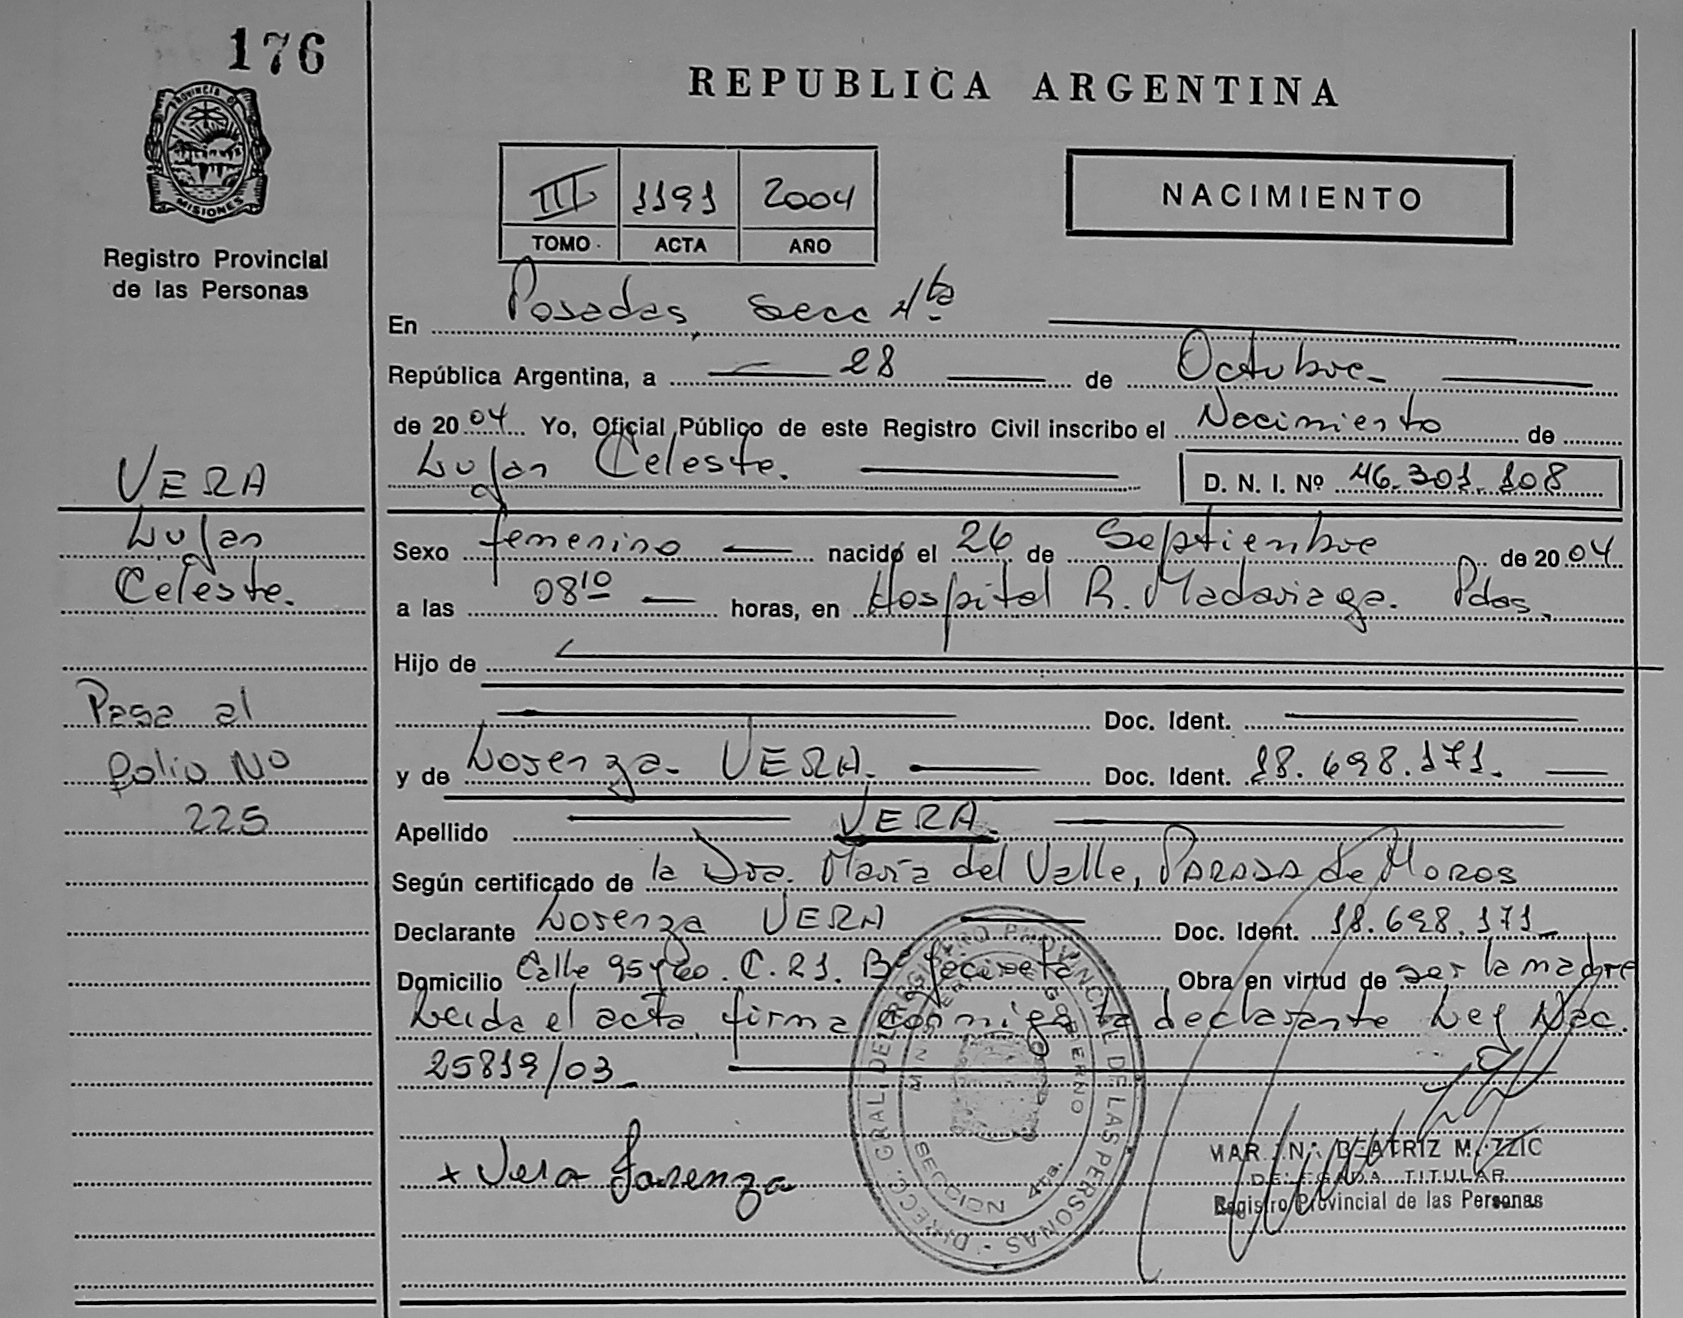 176
PROVINCIA DE
MISIONES
Registro Provincial
de las Personas
REPUBLICA ARGENTINA
III 1191 2004
TOMO ACTA AÑO
NACIMIENTO
En Posadas, Secc 4ta
República Argentina, a 28 de Octubre
de 2004 Yo, Oficial Público de este Registro Civil inscribo el Nacimiento de
Lujan Celeste.
D. N. I. Nº 46.301.108
VERA
Lujan
Celeste.
Sexo femenino nacido el 26 de Septiembre de 2004
a las 08 10 horas, en Hospital R. Madariaga. Pdas.
Hijo de
Doc. Ident.
Pasa al
folio Nº
225
y de Lorenza VERA. Doc. Ident. 18.698.171.
Apellido VERA.
Según certificado de la Dra. María del Valle, PARADA de Moros
Declarante Lorenza VERA Doc. Ident. 18.698.171
Domicilio Calle 95 y C. 21. Bº Yacireta Obra en virtud de ser la madre
Leida el acta, firma conmigo la declarante Ley Nac.
25819/03
x Vera Lorenza
DIRECC. GRAL. DEL REGISTRO PROVINCIAL DE LAS PERSONAS
GOBIERNO
SECCION 4ta.
BEATRIZ
TITULAR
Registro Provincial de las Personas